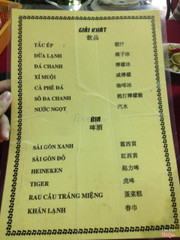 GIẢI KHÁT
飲品
TẮC ÉP
DỪA LẠNH 椰子冰
ĐÁ CHANH 檸檬冰
XÍ MUỘI
CÀ PHÊ ĐÁ 咖啡冰
SÔ ĐA CHANH
NƯỚC NGỌT 汽水
BIA
啤酒
SÀI GÒN XANH 藍西貢
SÀI GÒN ĐỎ 紅西貢
HEINEKEN
TIGER 虎啤
RAU CÂU TRÁNG MIỆNG
KHĂN LẠNH